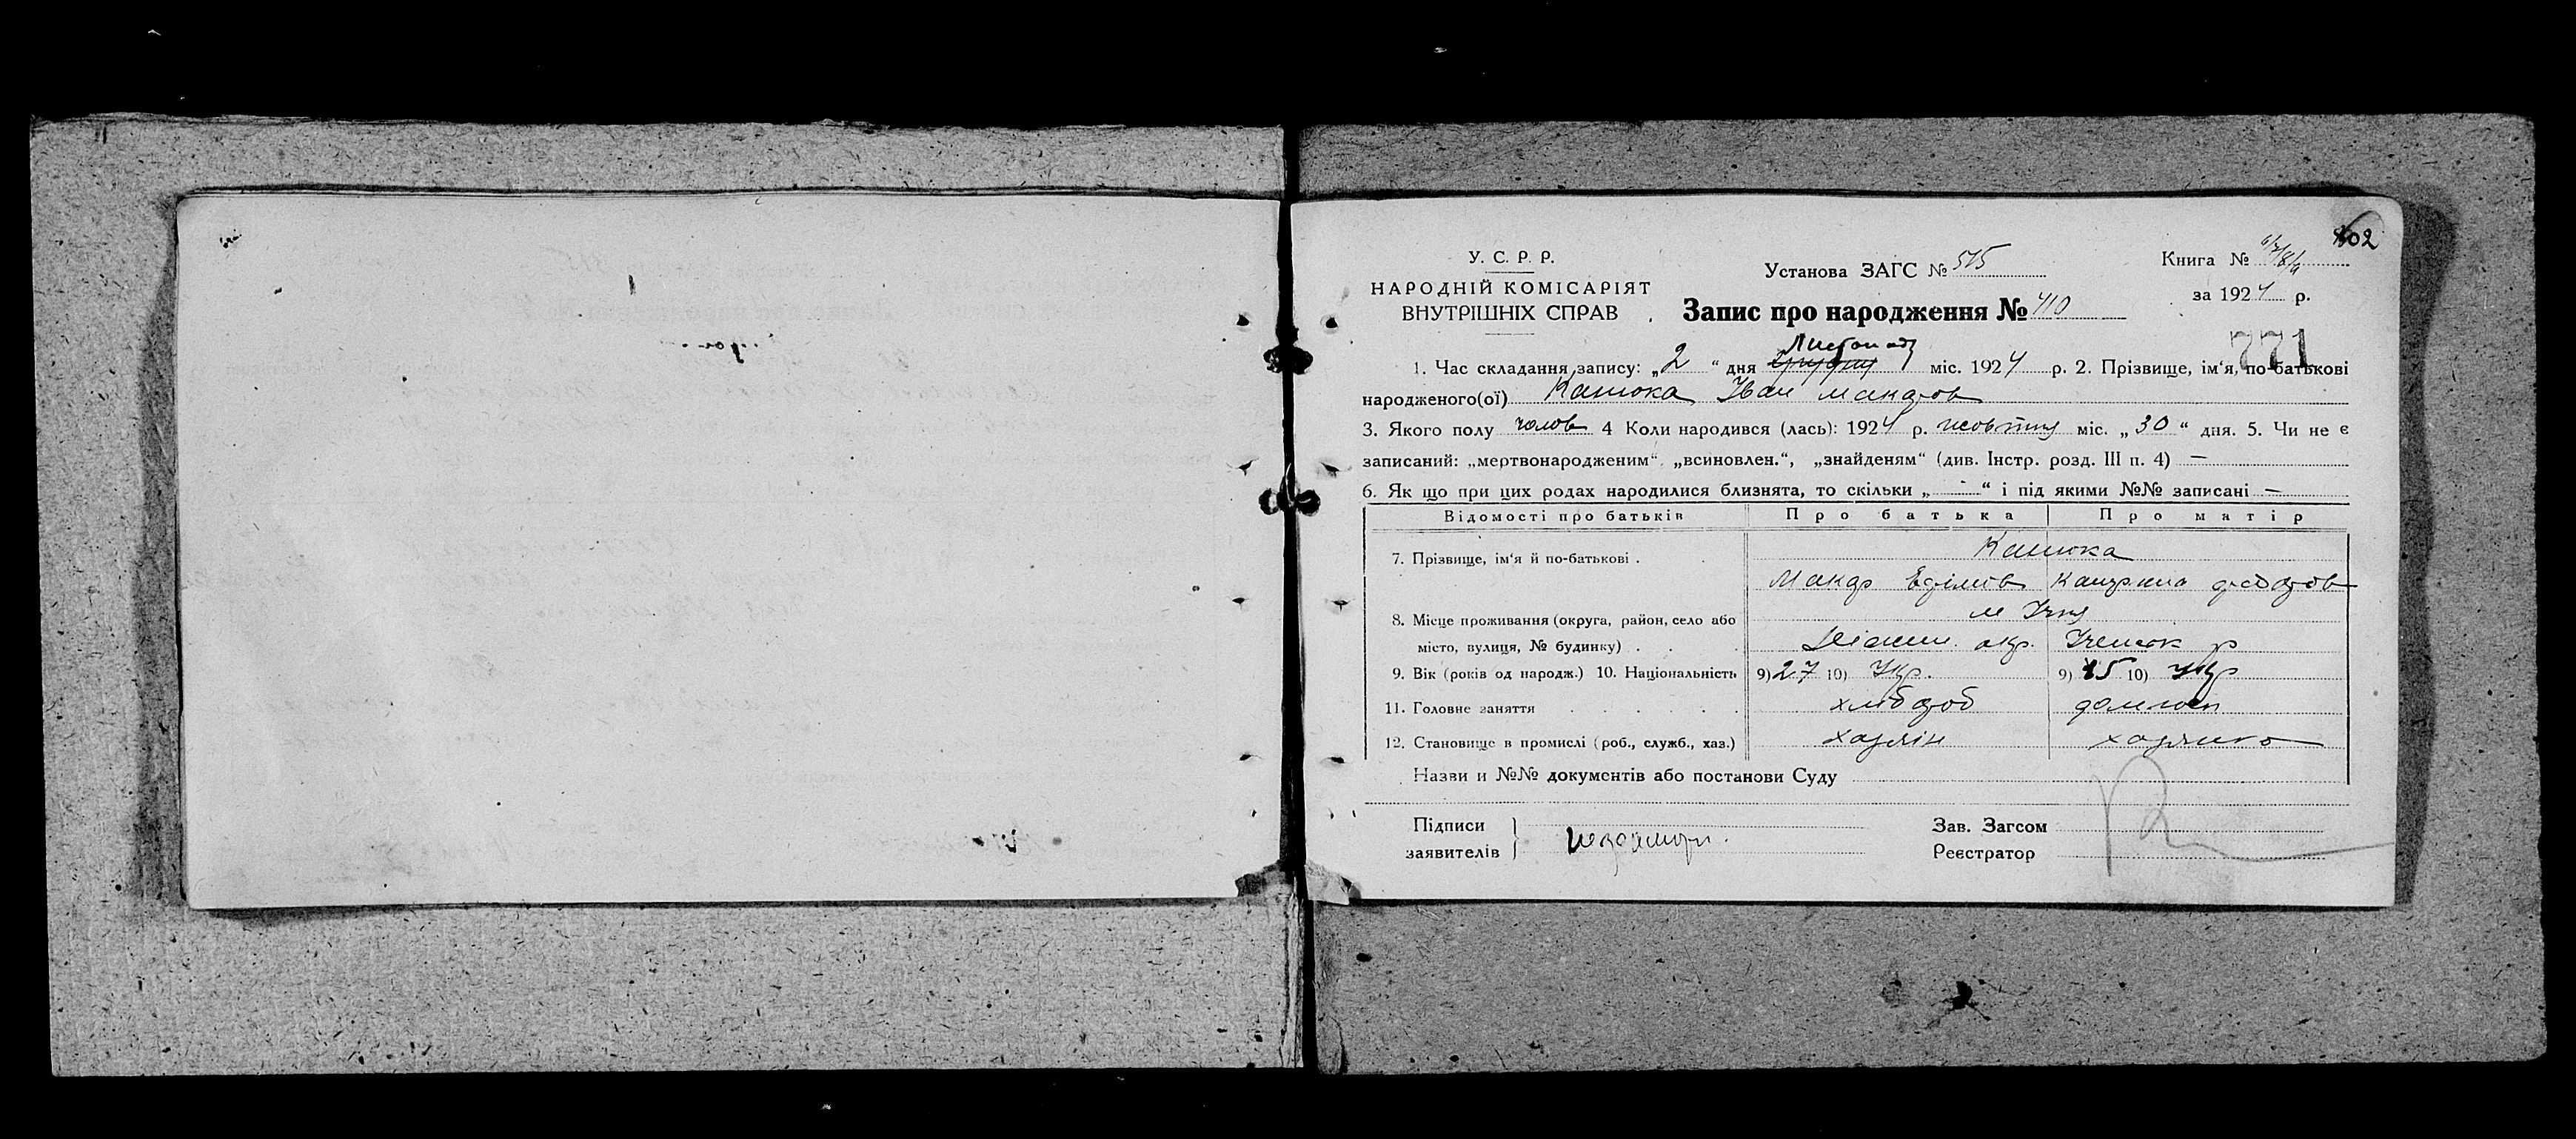 602
У. С. Р. Р.
НАРОДНІЙ КОМІСАРІЯТ
ВНУТРІШНІХ СПРАВ
Установа ЗАГС № 515
Книга №
за 1924 р.
Запис про народження № 410
771
Листопад
1. Час складання запису: „2“ дня міс. 1924 р. 2. Прізвище, ім‘я, по-батькові
народженого(ої) Іван Макаров
3. Якого полу чолов 4 Коли народився (лась): 1924 р. жовтня міс. „30“ дня. 5. Чи не є
записаний: „мертвонародженим“, „всиновлен.“, „знайденям“ (див. Інстр. розд. III п. 4) —
6. Як що при цих родах народилися близнята, то скільки „-“ і під якими №№ записані —
Відомості про батьків Про батька Про матір
7. Прізвище, ім‘я й по-батькові .
Макар
м Ічня
8. Місце проживання (округа, район, село або
місто, вулиця, № будинку) . . . окр. р
9. Вік (років од народж.) 10. Національність 9) 27 10) Укр. 9) 10) Укр
11. Головне заняття . . . . . хлібороб
12. Становище в промислі (роб., служб., хаз.) хазяїн хазяйка
Назви и №№ документів або постанови Суду
Підписи
заявителів
Зав. Загсом
Реєстратор